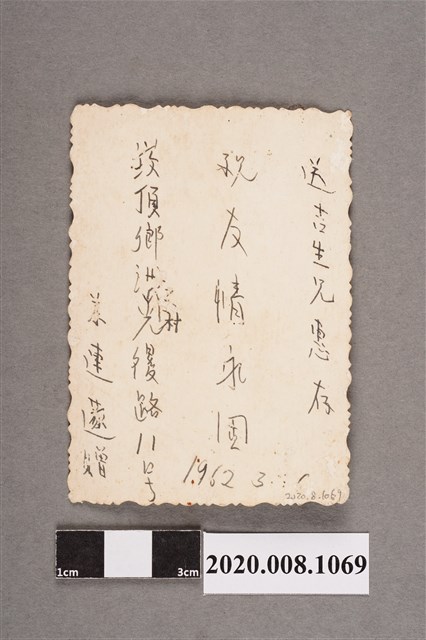 送吉生兄惠存
祝友情永固
1962 3
嵙頂鄉 光復路11号
村
連 贈
2020.8.1069
1cm
3cm
2020.008.1069